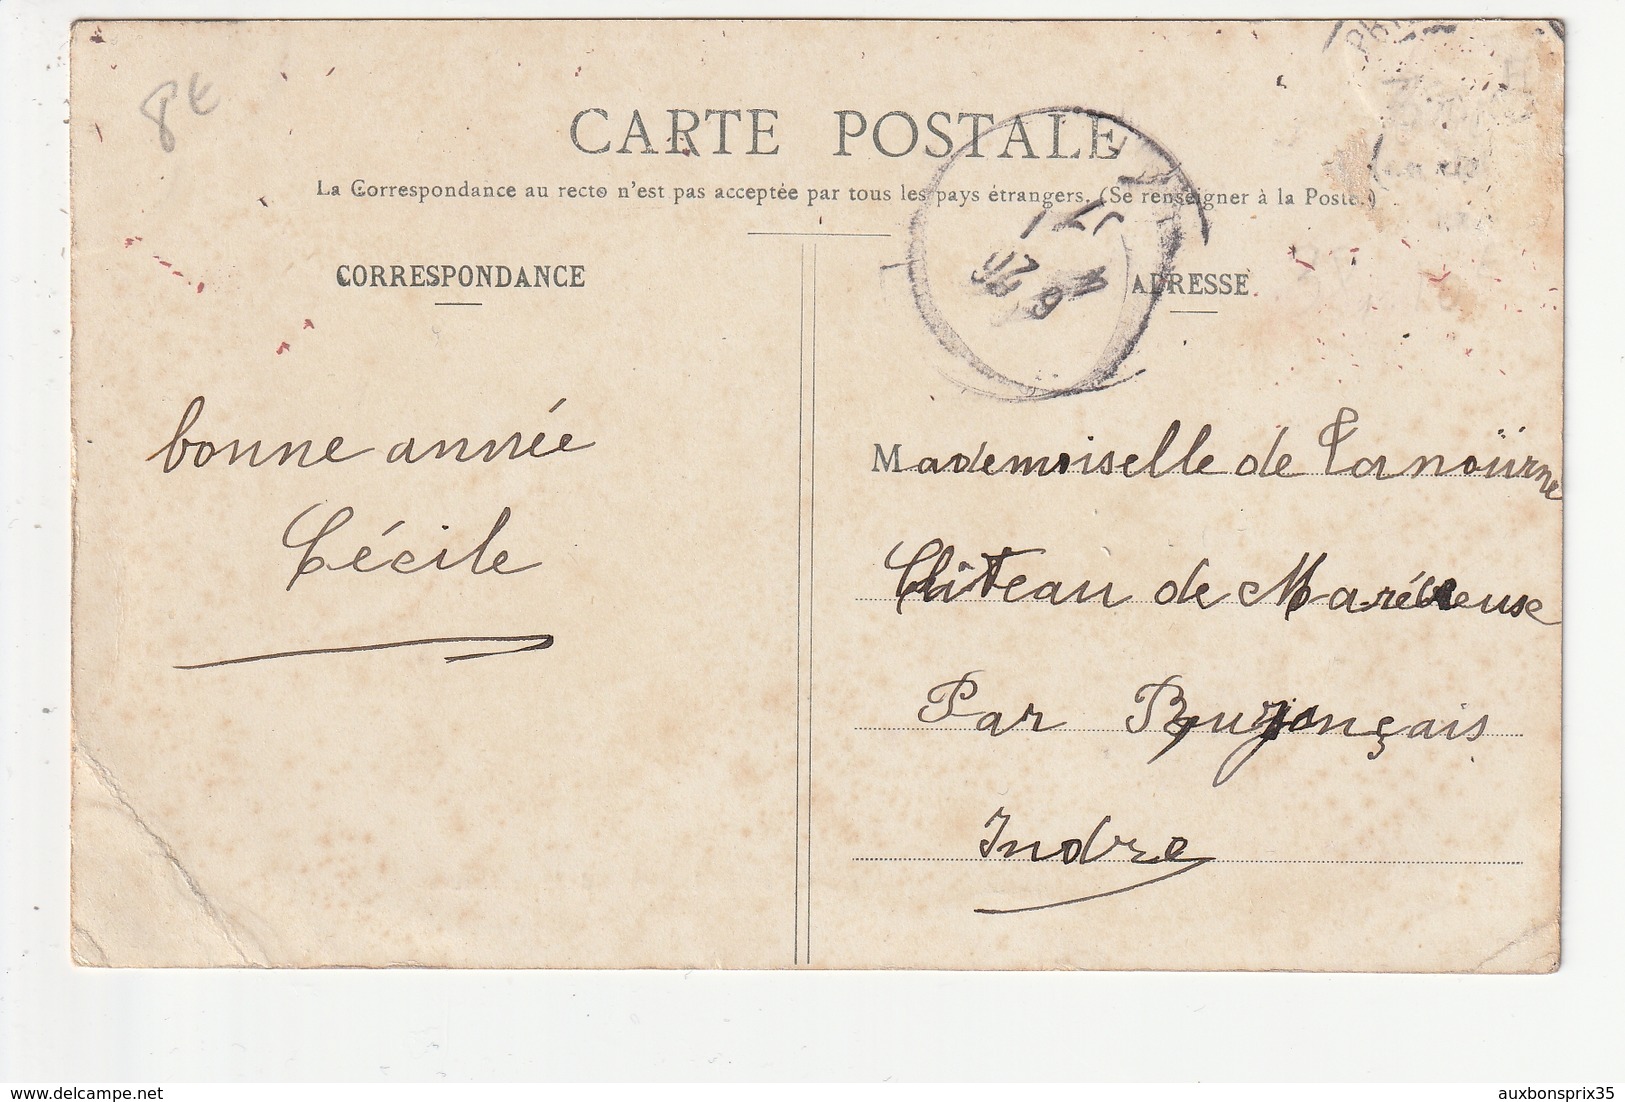 8€
CARTE POSTALE
La Correspondance au recto n'est pas acceptée par tous les pays étrangers. (Se renseigner à la Poste.)
CORRESPONDANCE
ADRESSE
bonne année
Cécile
Mademoiselle de Lanoüirne
Château de
Par Buzançais
Indre
delcampe.net
auxbonsprix35